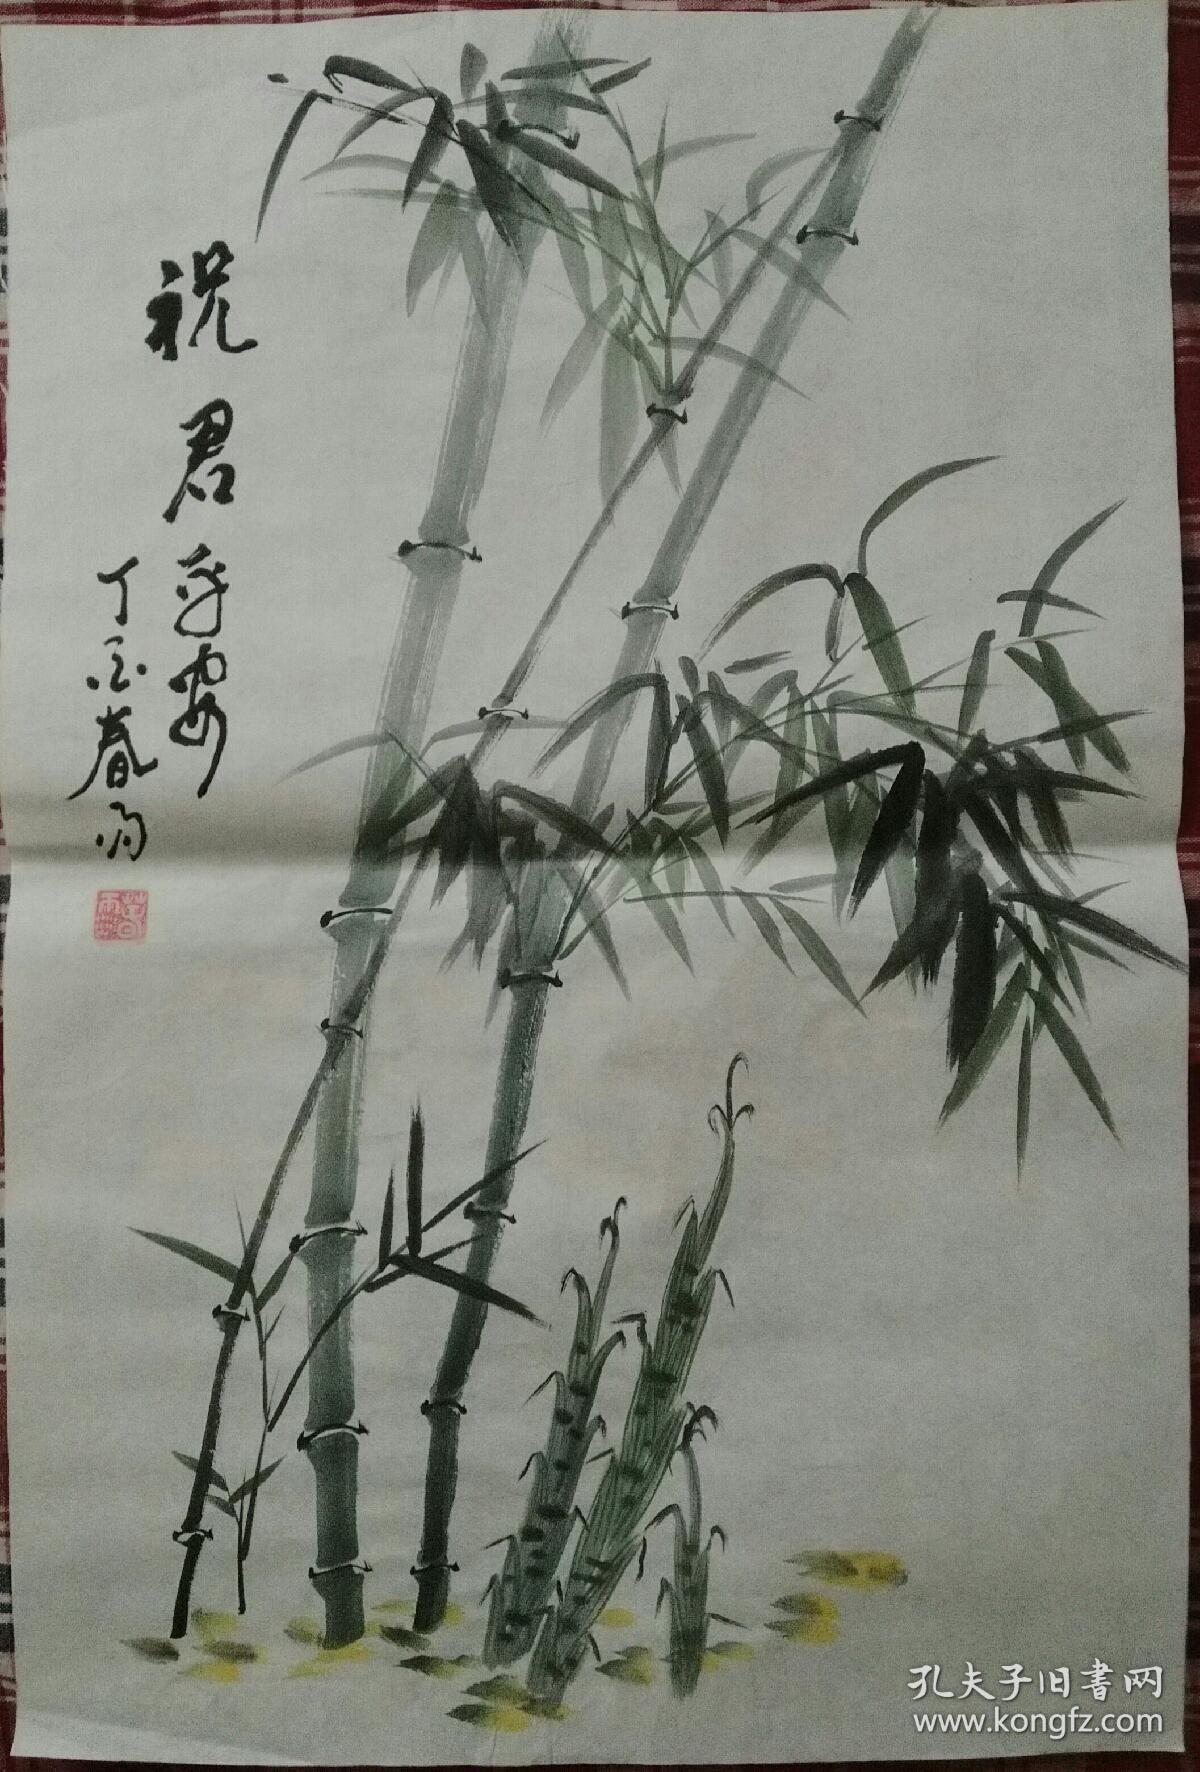 祝君平安
丁酉春雨
春雨
孔夫子旧書网
www.kongfz.com